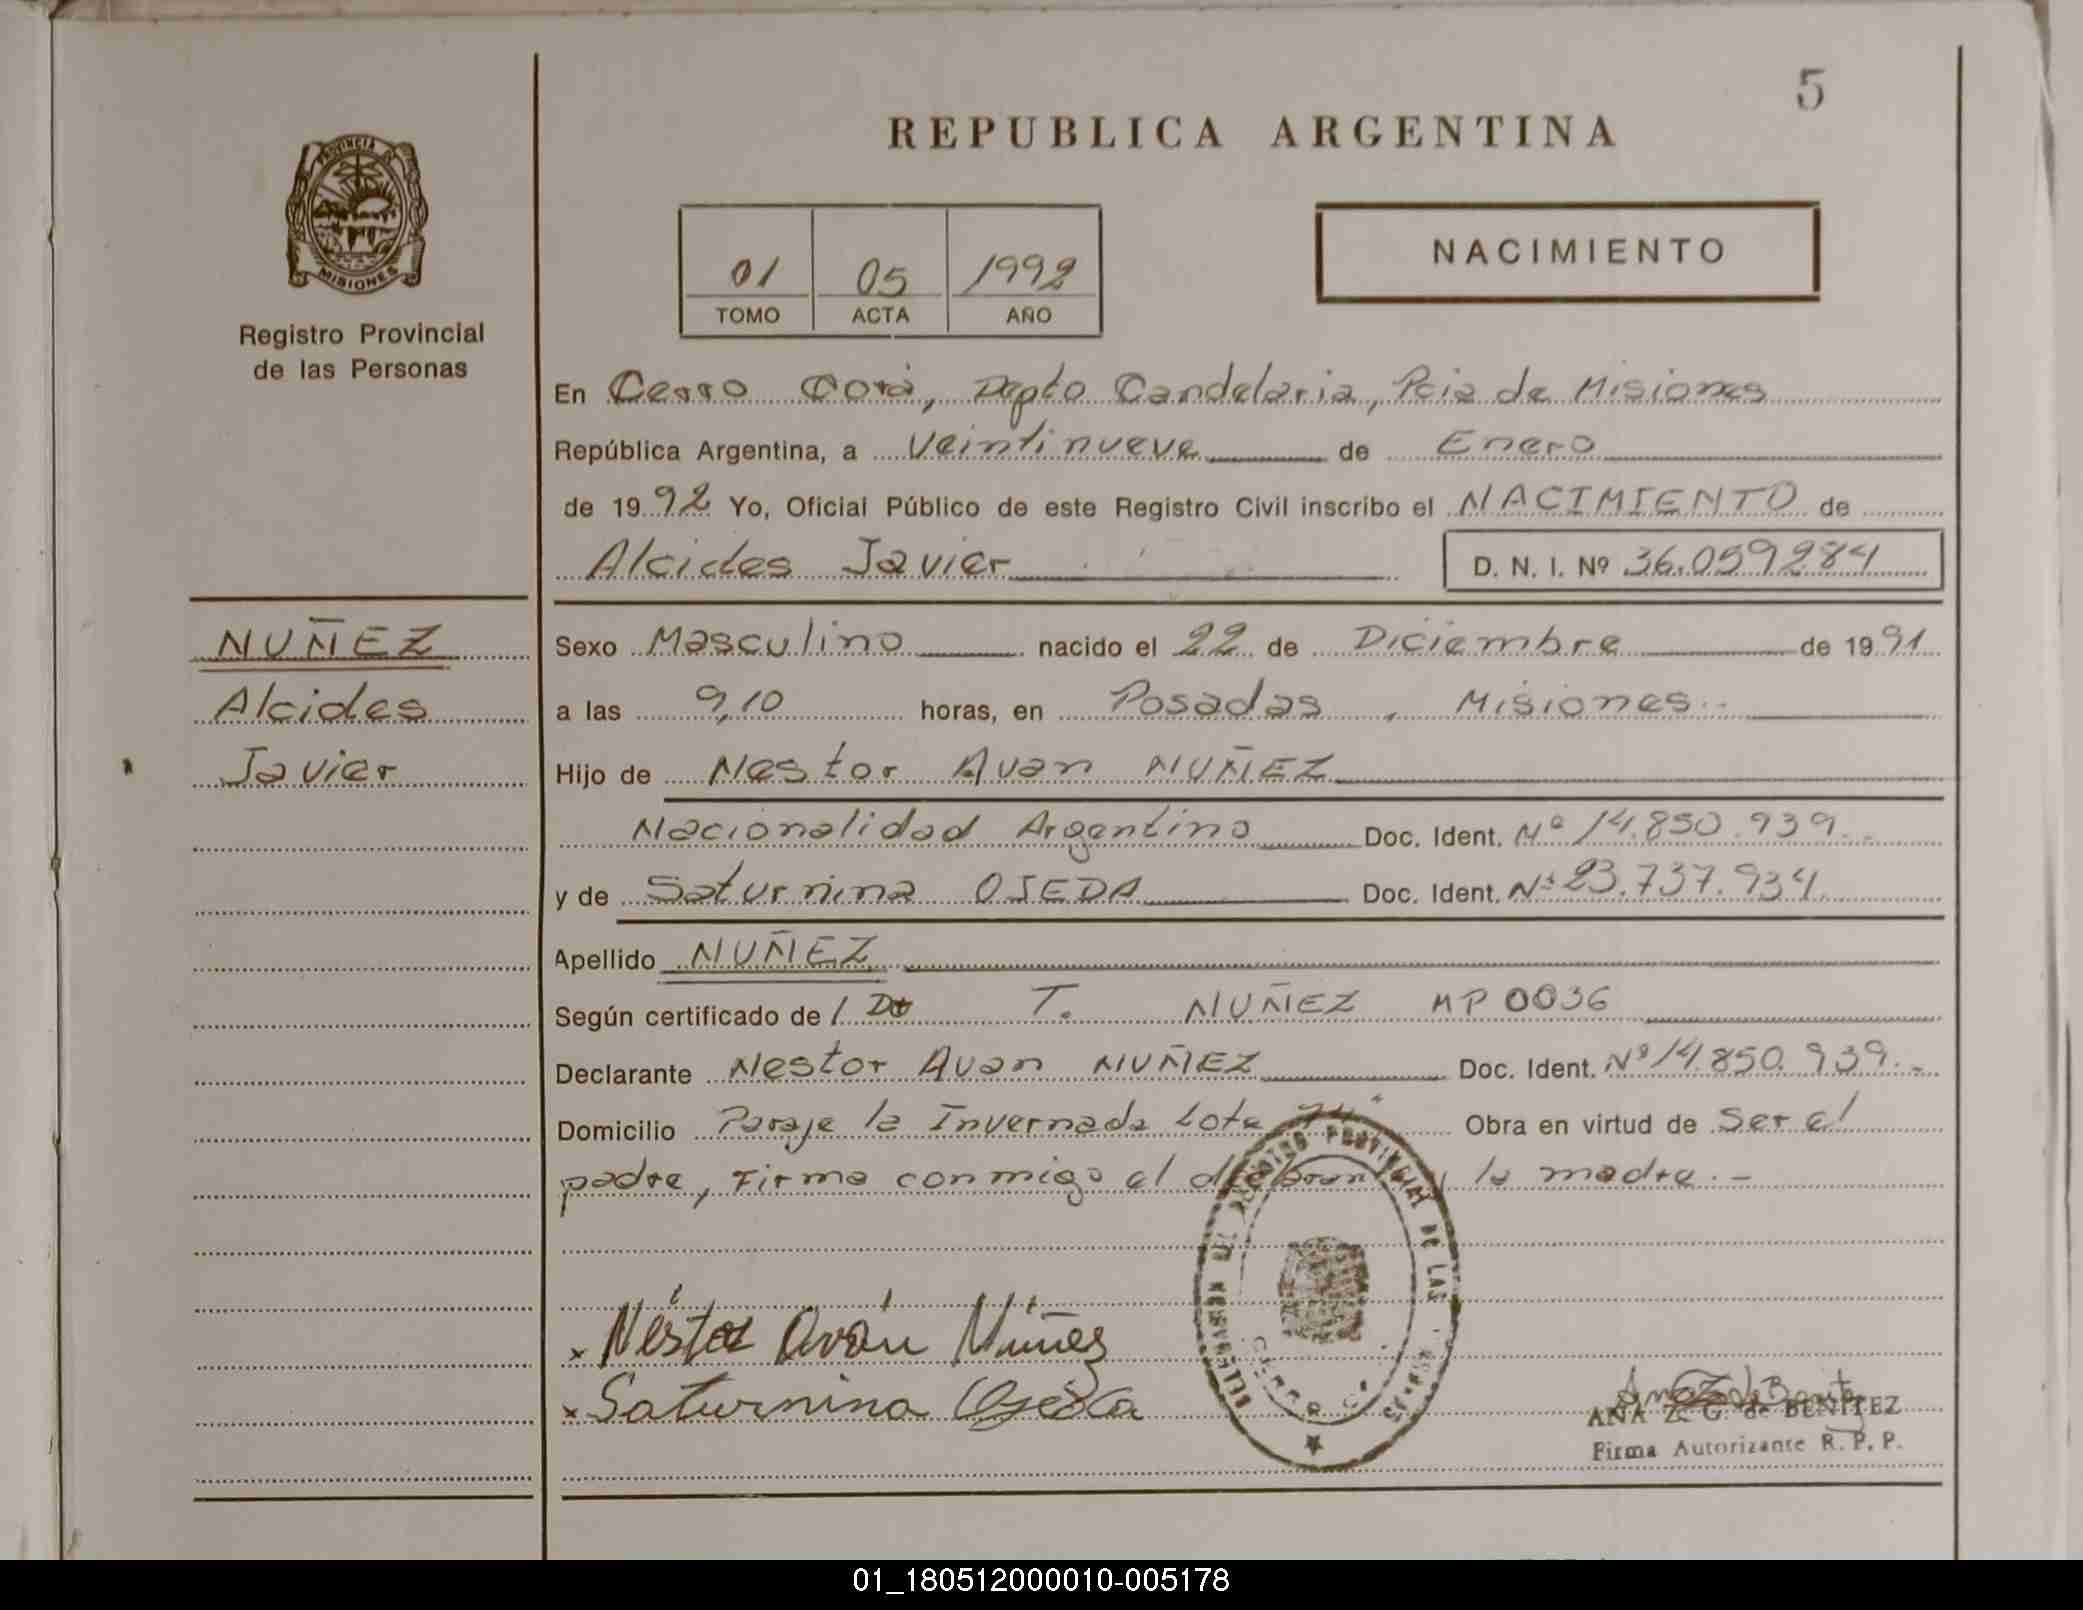 5
REPUBLICA ARGENTINA
PROVINCIA DE
MISIONES
Registro Provincial
de las Personas
01 05 1992
TOMO ACTA AÑO
NACIMIENTO
En Cerro Corá, Depto Candelaria, Pcia de Misiones
República Argentina, a Veintinueve de Enero
de 1992 Yo, Oficial Público de este Registro Civil inscribo el NACIMIENTO de
Alcides Javier D. N. I. Nº 36.059284
NUÑEZ
Alcides
Javier
Sexo Masculino nacido el 22 de Diciembre de 1991
a las 9,10 horas, en Posadas, Misiones.
Hijo de Nestor Avan NUÑEZ
Nacionalidad Argentino Doc. Ident. Nº 14.850.939.
y de Saturnina OJEDA Doc. Ident. Nº 23.737.934.
Apellido NUÑEZ
Según certificado de T. NUÑEZ MP 0036
Declarante Nestor Avan NUÑEZ Doc. Ident. Nº 14.850.939.-
Domicilio Paraje la Invernada Lote Obra en virtud de Ser el
padre, Firma conmigo el la madre.-
Néstor Aván Núñez
Saturnina Ojeda
ANA Z. G. de BENITEZ
Firma Autorizante R. P. P.
01_180512000010-005178